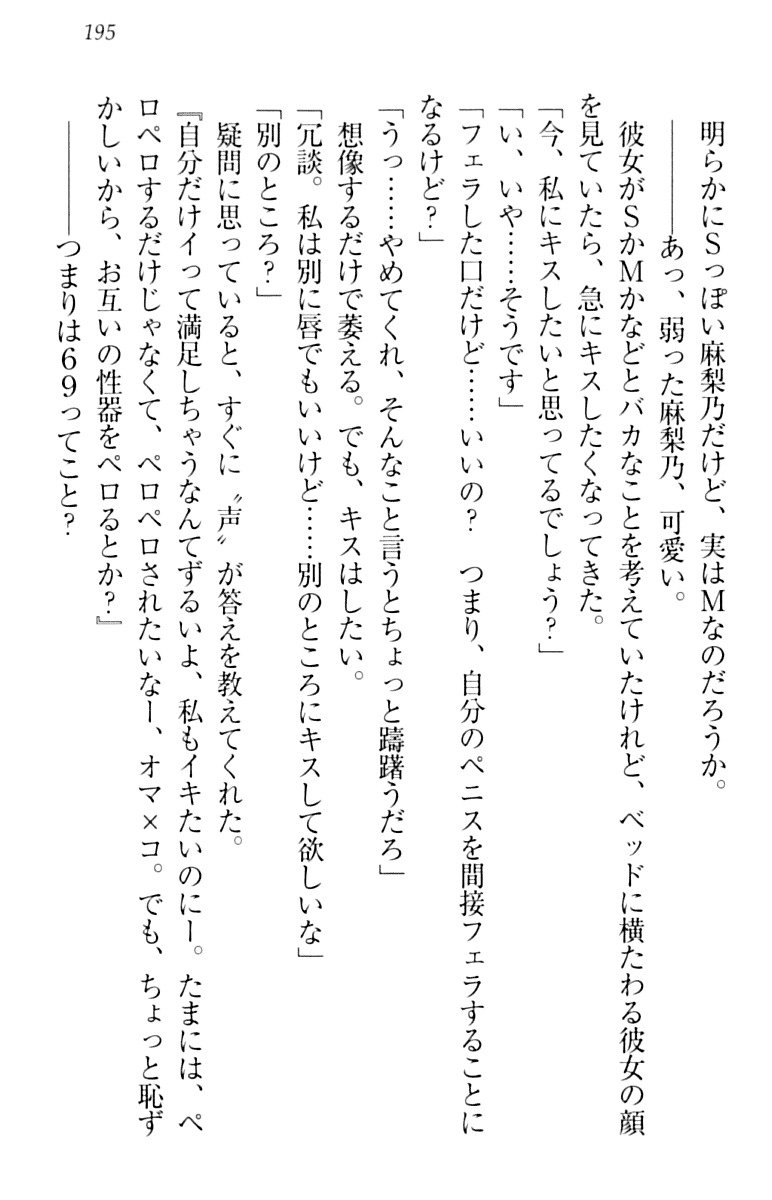 195
明らかにSっぽい麻梨乃だけど、実はMなのだろうか。
――あっ、弱った麻梨乃、可愛い。
彼女がSかMかなどとバカなことを考えていたけれど、ベッドに横たわる彼女の顔
を見ていたら、急にキスしたくなってきた。
「今、私にキスしたいと思ってるでしょう?」
「い、いや……そうです」
「フェラした口だけど……いいの? つまり、自分のペニスを間接フェラすることに
なるけど?」
「うっ……やめてくれ、そんなこと言うとちょっと躊躇うだろ」
想像するだけで萎える。でも、キスはしたい。
「冗談。私は別に唇でもいいけど……別のところにキスして欲しいな」
「別のところ?」
疑問に思っていると、すぐに〝声〟が答えを教えてくれた。
『自分だけイって満足しちゃうなんてずるいよ、私もイキたいのにー。たまには、ペ
ロペロするだけじゃなくて、ペロペロされたいなー、オマ×コ。でも、ちょっと恥ず
かしいから、お互いの性器をペロるとか?』
――つまりは69ってこと?